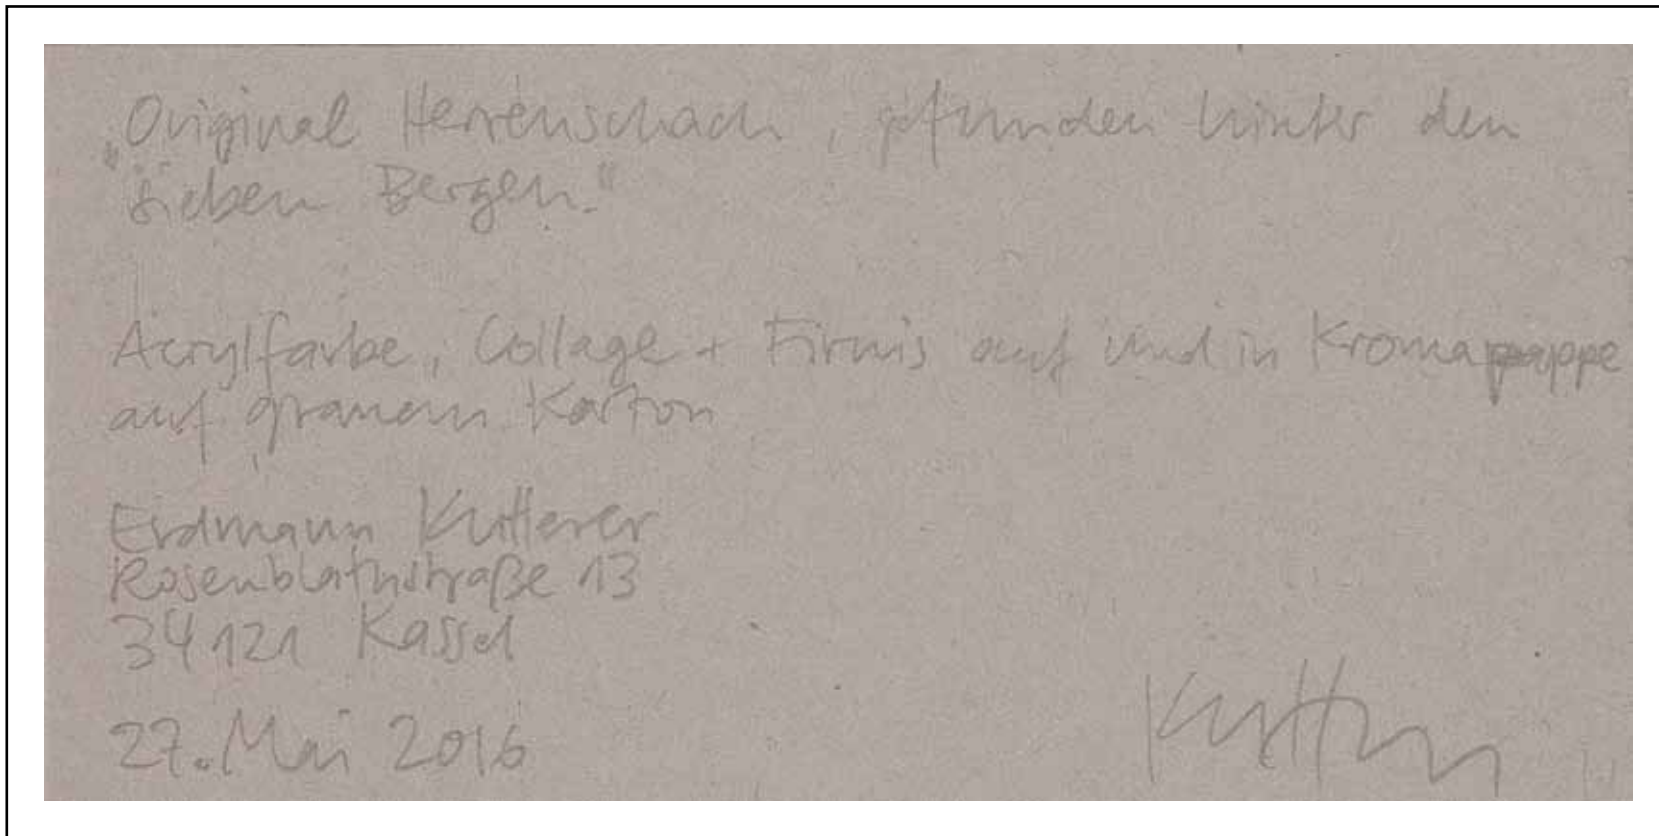 „Original Herrenschach, gefunden hinter den
sieben Bergen."
Acrylfarbe, Collage + Firnis auf und in Kromapappe
auf grauem Karton
Erdmann Kutterer
Rosenblathstraße 13
34121 Kassel
27. Mai 2016